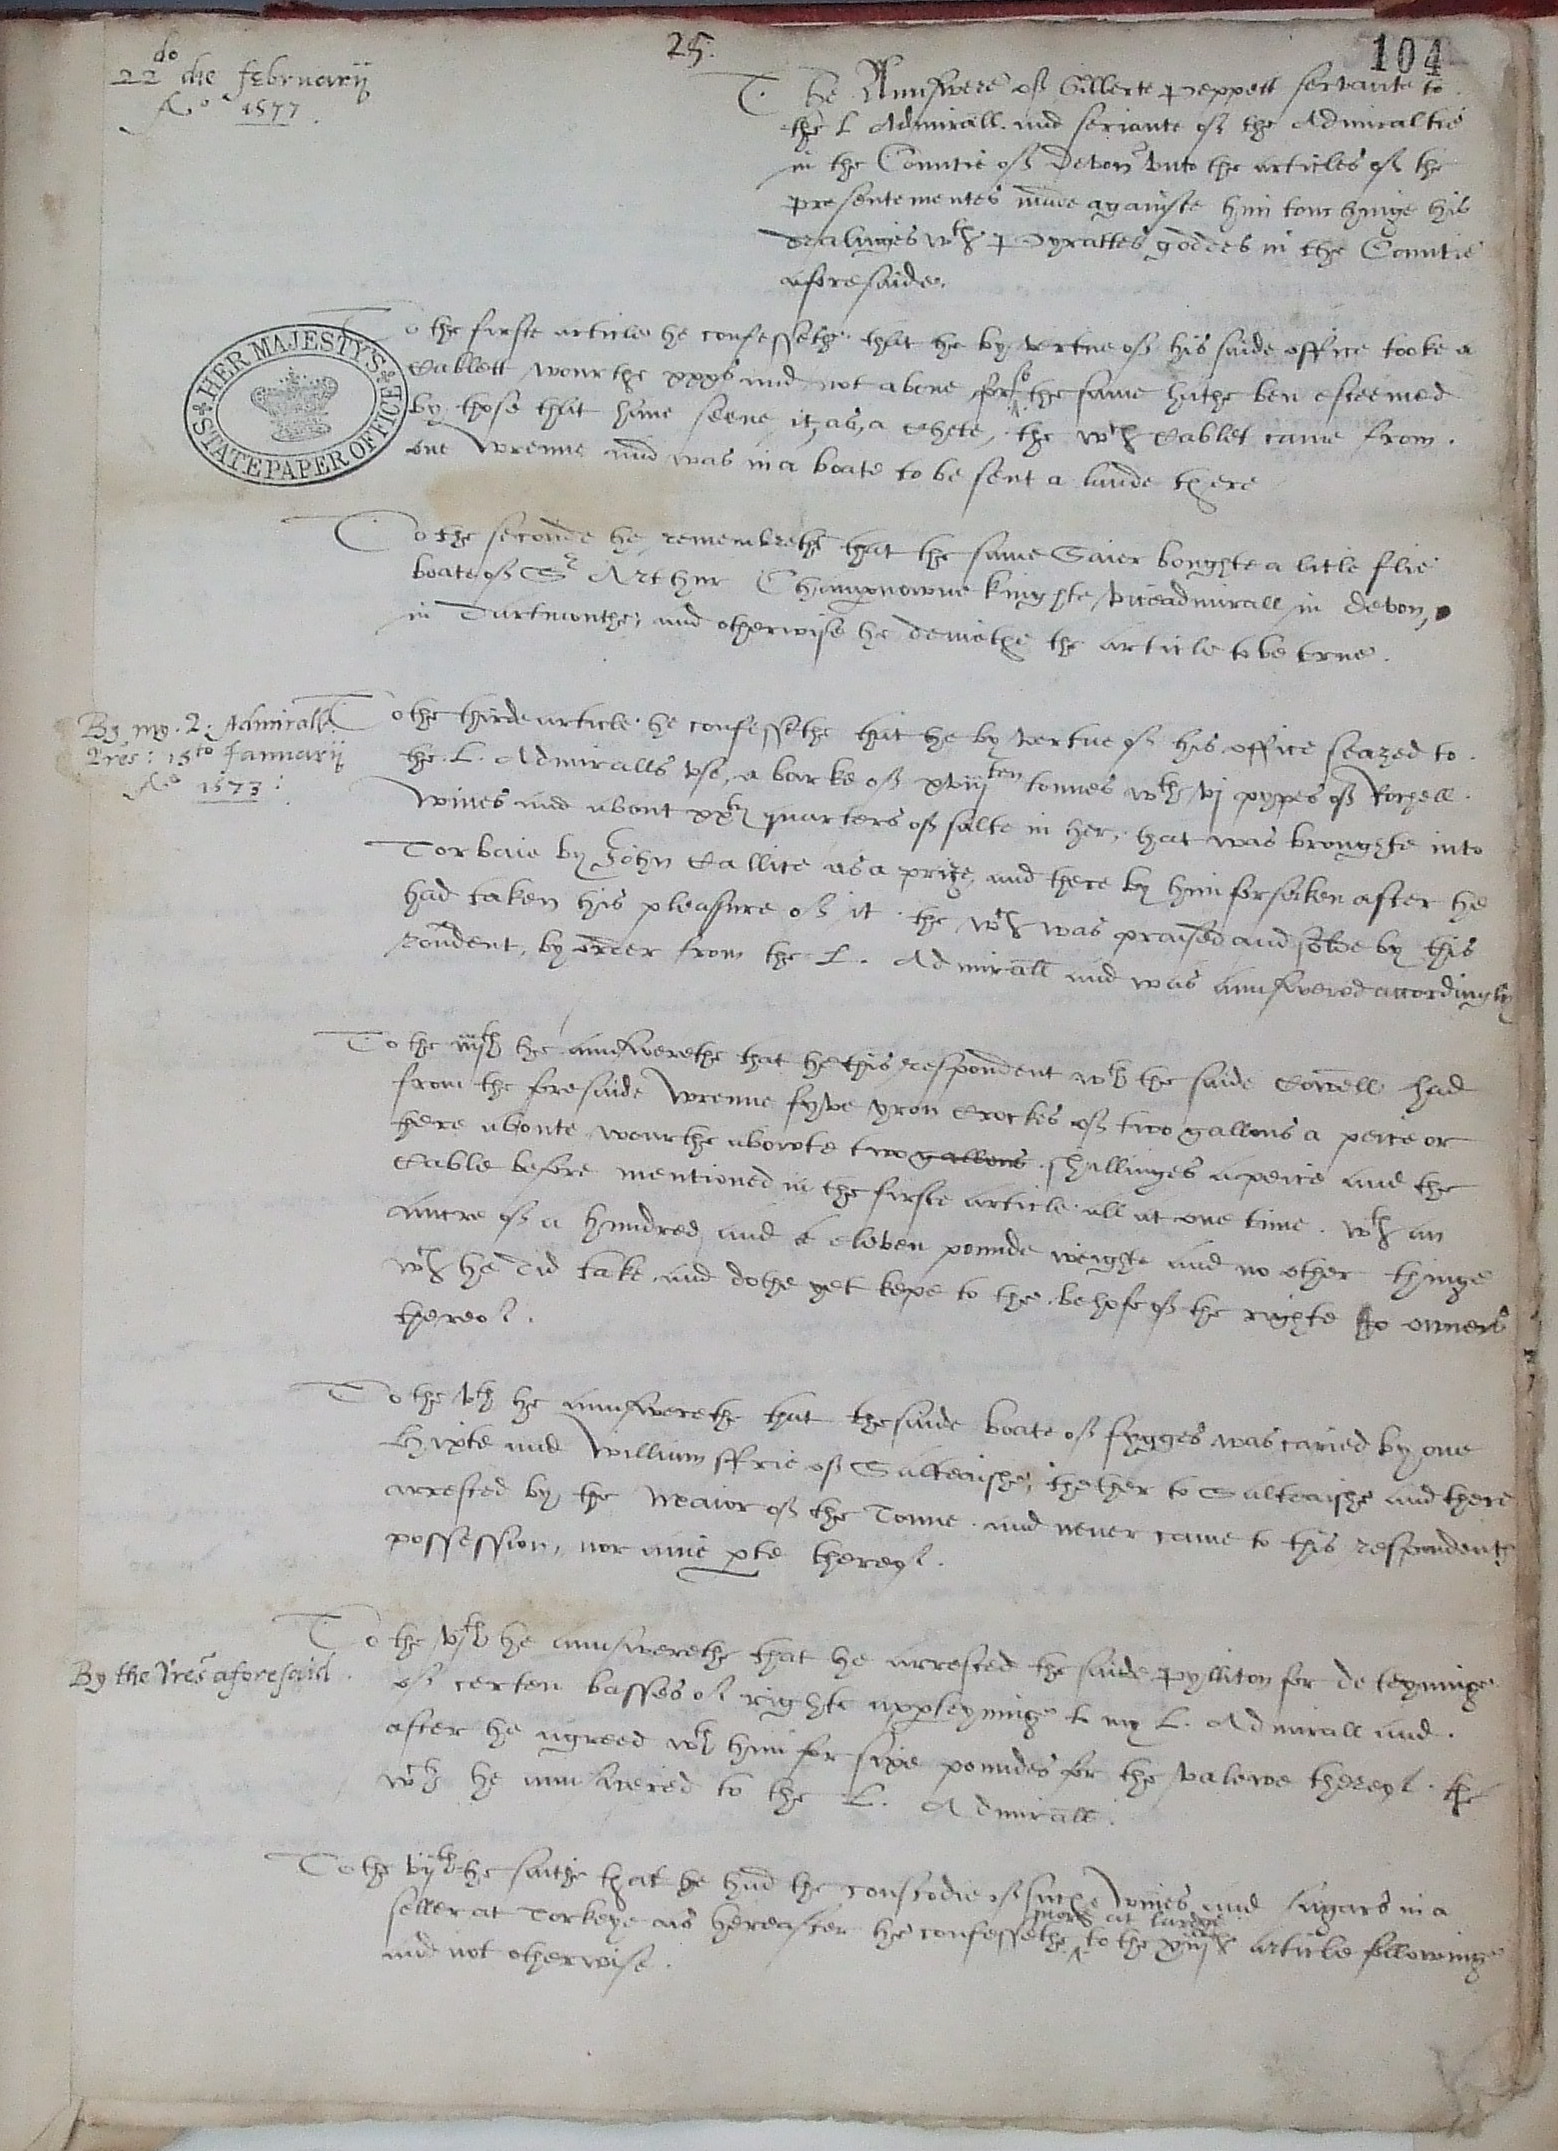 25.
104
22do die februarij
Ao 1577.
The Aunswere of Gilberte Peppett servante to
the L Admirall and seriante of the Admiraltie
in the Countie of Devon vnto the articles of the
presentementes made againste him touchinge his
dealinges wth Pyrattes goodes in the Countie
aforesaide.
HER MAJESTY'S STATE PAPER OFFICE
To the firste article he confessethe that he by vertue of his saide office tooke a
Cablett wourthe xxxs and not above for so the same hathe ben esteemed
by those that haue seene it, as, a Chete, the wch Cablet came from
one Wrenne and was in a boate to be sent a lande there
To the seconde he remembrethe that the same Saier boughte a litle flie
boate of Sr Arthur Champnowne knighte, viceadmirall in devon,
in Dartmouthe, and otherwise he deniethe the article to be true.
By my L. Admiralls
lres: 15to Januarij
Ao 1573:
To the thirde article he confessethe that he by vertue of his office seazed to
the L. Admiralls vse, a barke of xviijten tonnes wth vj pypes of Rochell
Wines and about xxti quarters of salte in her, that was broughte into
Torbaie by John Callice as a prize, and there by him forsaken after he
had taken his pleasure of it the wch was praised and solde by this
rondent, by order from the L. Admirall and was aunswered accordingly
To the iiijth he aunswerethe that he this respondent wth the saide Cowell had
from the foresaide Wrenne fyve yron Crockes of two gallons a peice or
here aboute wourthe abowte two gallons shillinges apeice and the
Cable before mentioned in the firste article all at one time. wth an
ancre of a hundred and eleven pounde weighte and no other thinge
wch he did take and dothe yet kepe to the behofe of the righte owners
thereof.
To the vth he aunswerethe that the saide boate of fygges was caried by one
Hixte and William ffrie of Salteaishe, thether to Salteaishe and there
arrested by the Meaior of the Towne and never came to this respondentes
possession, nor anie pte thereof.
By the lres aforesaid.
To the vjth he aunswerethe that he arrested the saide Pylliton for deteyninge
of certen basses of righte apperteyninge to my L. Admirall and
after he agreed wth him for sixe poundes for the valewe thereof. the
wch he aunswered to the L. Admirall.
To the vijth he saithe that he had the custodie of suche Wines and sugars in a
seller at Torkeye as hereafter he confessethe more at large to the xiiijth article followinge
and not otherwise.